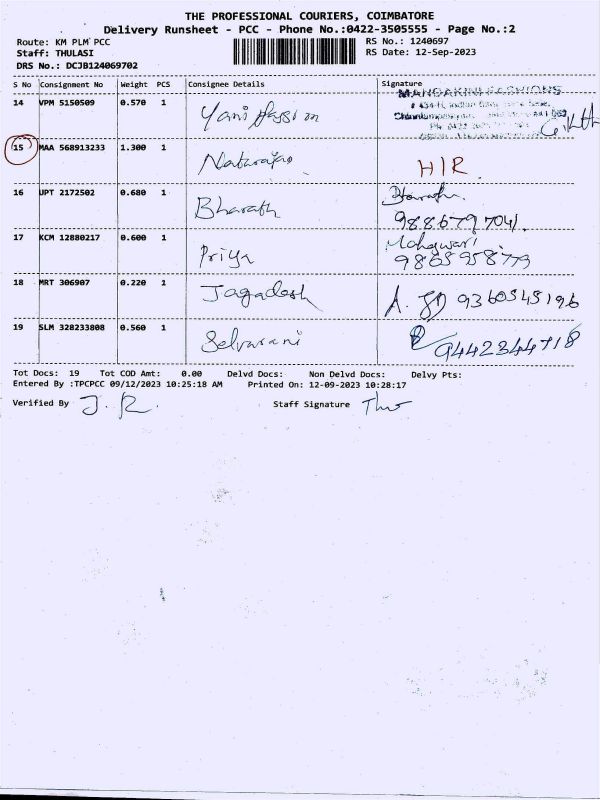 THE PROFESSIONAL COURIERS, COIMBATORE
Delivery Runsheet - PCC - Phone No.:0422-3505555 - Page No.:2
Route: KM PLM PCC RS No.: 1240697
Staff: THULASI RS Date: 12-Sep-2023
DRS No.: DCJB124069702
S No Consignment No Weight PCS Consignee Details Signature
14 VPM 5150509 0.570 1 Yani MANDAKINI FASHIONS
15 MAA 568913233 1.300 1 Natarajan H/R
16 UPT 2172502 0.680 1 Bharath Bharath
9886797041.
17 KCM 12880217 0.600 1 Priya Maheswari
9865958779
18 MRT 306907 0.220 1 Jagadesh A. 9360545196
19 SLM 328233808 0.560 1 Selvarani 9442344718
Tot Docs: 19 Tot COD Amt: 0.00 Delvd Docs: Non Delvd Docs: Delvy Pts:
Entered By :TPCPCC 09/12/2023 10:25:18 AM Printed On: 12-09-2023 10:28:17
Verified By J. R. Staff Signature